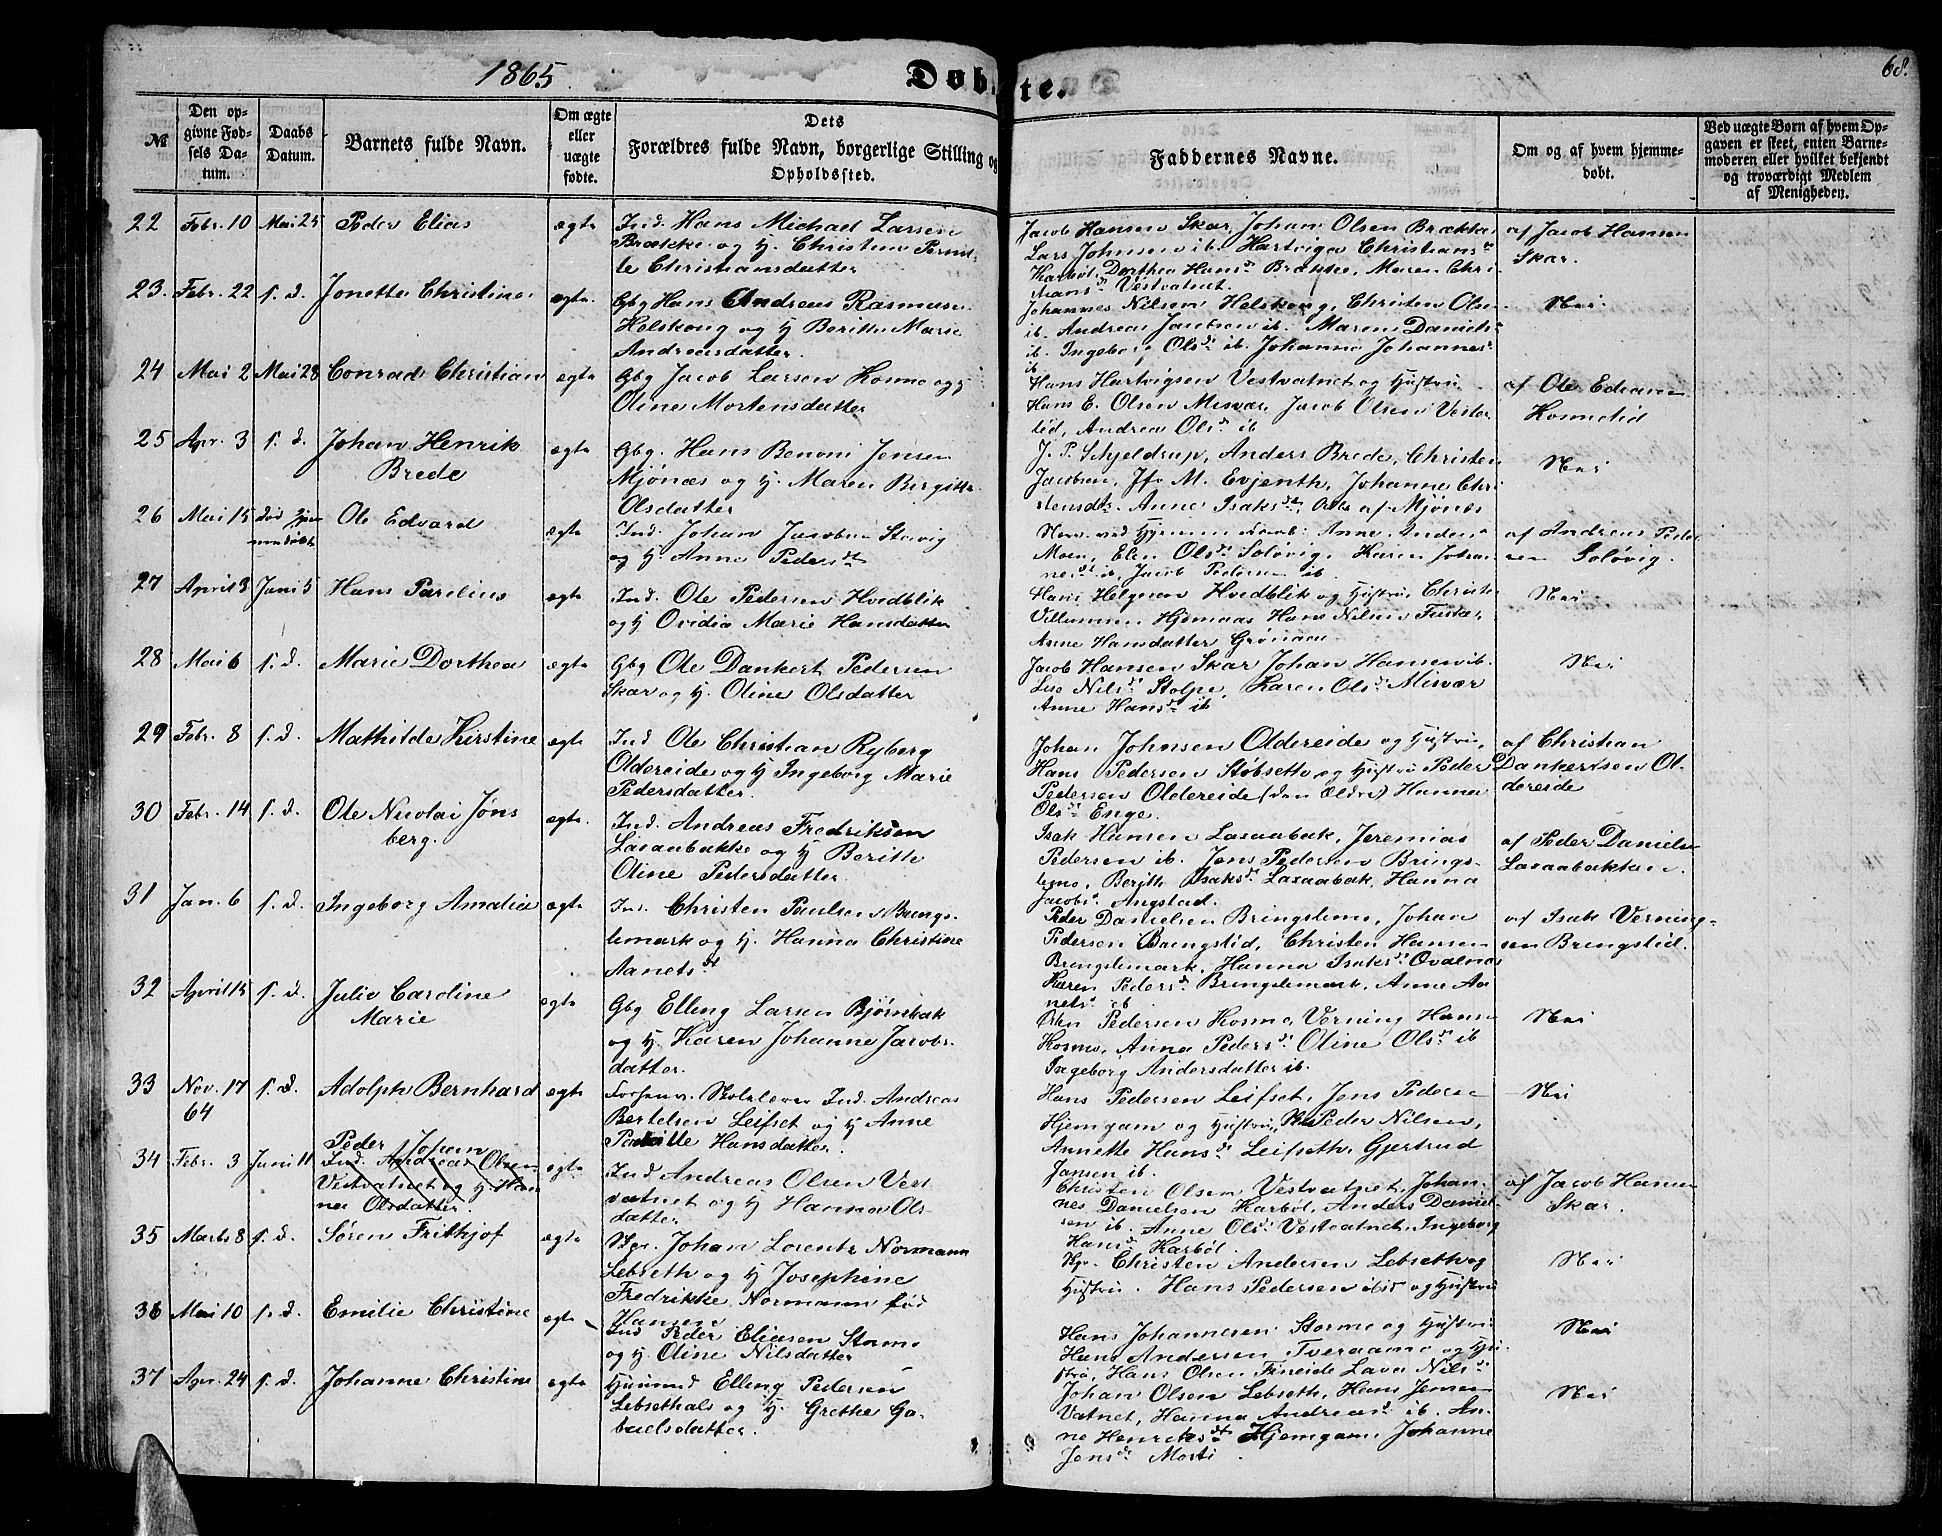 1865.
Døbte.
68.
№
Den opgivne Fødsels Datum.
Daabs Datum.
Barnets fulde Navn.
Om ægte eller uægte fødte.
Dets Forældres fulde Navn, borgerlige Stilling og Opholdssted.
Faddernes Navne.
Om og af hvem hjemmedøbt.
Ved uægte Børn af hvem Opgaven er skeet, enten Barnemoderen eller hvilket bekjendt og troværdigt Medlem af Menigheden.
22 Febr. 10 Mai 25 Peder Elias ægte Ind. Hans Michael Larsen
Brække og H. Christine Pernil-
le Christiansdatter
Jacob Hansen Skar, Johan Olsen Brække
Lars Johnsen ib. Hartviga Christians
Karbøl, Dorthea Hansd. Brække, Maren Chri
stiansd. Vestvatnet.
af Jacob Hansen
Skar.
23. Febr. 22 s. d. Jonette Christine ægte. Gbg Hans Andreas Rasmuss.
Helskoug og H Beritte Marie
Andreasdatter.
Johannes Nilsen Helskoug, Christen Olsen
ib. Andreas Jacobsen ib. Maren Daniels
ib. Ingeborg Olsd. ib. Johanna Johannes
ib
Nei
24 Mai 2 Mai 28 Conrad Christian ægte Gbg Jacob Larsen Kosmo og H
Oline Mortensdatter
Hans Hartvigsen Vestvatnet og Hustru
Hans E. Olsen Misvær, Jacob Olsen Vester
lid, Andrea Olsd. ib
af Ole Edvard
25 Apr. 3 s. d. Johan Henrik
Brede
ægte Gbg. Hans Benoni Jensen
Mjønæs og H. Maren Bergitte
Olsdatter
J. P. Schjeldrup, Anders Brede, Christen
Jacobsen, Jfr M. Evjenth, Johanne Chri
stensdt. Anne Isaksdt, Alle af Mjønes
Nei
26 Mai 15 død hjem-
medøbt
Ole Edvard ægte Ind. Johan Jacobsen
og H. Anne Pedersdt
Moen, Elen Olsd Soløvig, Karen Johan
nesdt ib, Jacob Pedersen ib.
af Andreas Peder
sen Soløvig.
27 April 3 Juni 5 Hans Parelius ægte Ind. Ole Pedersen Hvidblik
og H Ovidia Marie Hansdatter
Hans Helgesen Hvidblik og Hustru, Christ
Villumsen Hjemaas Hans Nilsen Fuskær,
Anne Hansdatter Grønaaen
Nei
28 Mai 6 s. d. Marie Dorthea ægte Gbg Ole Dankert Pedersen
Skar og H. Oline Olsdatter
Jacob Hansen Skar Johan Hansen ib.
Lise Nilsd. Stolpe, Karen Olsd. Misvær
Anne Hansd. ib
Nei
29 Febr. 8 s. d. Mathilde Kirstine ægte Ind Ole Christian Ryberg
Oldereide og H Ingeborg Marie
Pedersdatter.
Johan Johnsen Oldereide og Hustru,
Hans Pedersen Støbseth og Hustru Peder
Pedersen Oldereide (den Ældre) Hanna
Olsdt Enge.
af Christian
Dankertsen Ol-
dereide
30 Febr. 14 s. d. Ole Nicolai Jøns
berg.
ægte. Ind. Andreas Fredriksen
Laxaabakke og H Berith
Oline Pedersdatter.
Isak Hansen Laxaabak, Jeremias
Pedersen ib. Jens Pedersen Brings-
lemo, Berith Isaksdt Laxaabak, Hanna
Jacobsd. Angstad.
af Peder Daniels
Laxaabakken.
31 Jan. 6 s. d. Ingeborg Amalie ægte Ind. Christen Paulsen Brings-
lemark og H. Hanna Christine
Aanetsdt
Peder Danielsen Bringslemo, Johan
Pedersen Bringslid, Christen Hansen
Bringslemark, Hanna Isaksdt Ovalnæs
Karen Pedersd. Bringslemark, Anne Aa
netsd. ib
af Isak Verning-
sen Bringslid.
32 April 15 s. d. Julie Caroline
Marie
ægte Gbg Elling Larsen Bjørnbak
og H. Karen Johanne Jacobs-
datter.
Pedersen Kosmo, Verning Hansen
Kosmo, Anna Pedersdt Oline Olsdt ib
Ingeborg Andersdatter ib.
Nei
33 Nov. 17
64
s. d. Adolph Bernhard ægte Forhenv. Skolelærer Ind. Andreas
Bertelsen Leifset og H Anne
Hansdatter.
Hans Pedersen Leifset, Jens Peders
Hjemgam og Hustru, Peder Nilsen,
Annette Hansdt Leifseth, Gjertrud
Jansen ib.
Nei
34 Febr. 3 Juni 11 Peder Johan
Ind. Andreas Olsen
Vestvatnet og H. Han
na Olsdatter.
ægte Ind Andreas Olsen Vest
vatnet og H Hanna Ols-
datter
Christen Olsen Vestvatnet, Johan-
nes Danielsen Karbøl, Anders Daniel-
sen ib. Anne Olsdt Vestvatnet, Ingeborg
Hansd. Karbøl.
af Jacob Hansen
Skar.
35 Marts 8 s. d. Søren Frithjof ægte Johan Lorentz Normann
Lebseth og H Josephine
Fredrikke Normann fød
Hansen
Christen Andersen Lebseth og
Hustru. Hans Pedersen ibid og Hustru
Nei
36 Mai 10 s. d. Emilie Christine ægte Ind Peder Eliasen Stormo
og H. Oline Nilsdatter
Hans Johannesen Stormo og Hustru
Hans Andersen Tveraamo og Hu-
stru, Hans Olsen Fineide Lava Nilsdt
Nei
37 Apr. 24 s. d. Johanne Christine ægte Huusmd Elling Pedersen
Lebsethals og H. Grethe Ga-
brielsdatter.
Johan Olsen Lebseth, Hans Jensen
Vatnet, Hanna Andreasd. ib. An-
ne Henriksdt Hjemgam, Johanne
Jensdt Mosti.
Nei